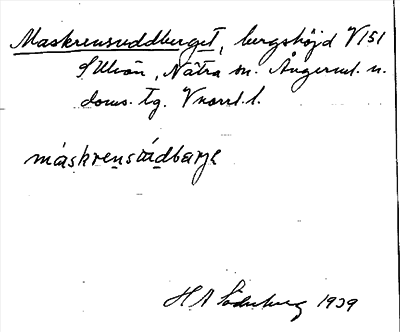 Maskrensuddberget, bergshöjd V151
S Ulvön, Nätra sn. Ångerml. n.
doms. tg. V norrl. l.
máskrensúdbarjə
H A Söderberg 1939